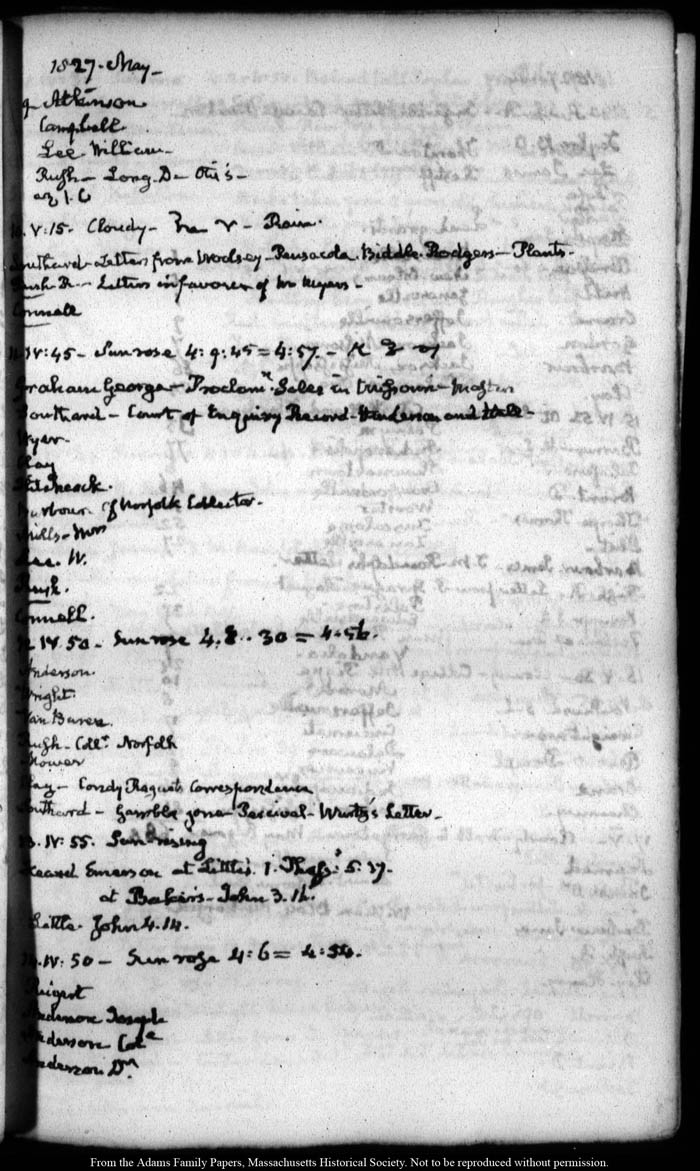 1827. May-
9 Atkinson
Campbell
Lee. William-
Rush- Long. D- Otis-
V:15- Cloudy- V- Rain.
Southard- Letters from Woolsey- Pensacola. Biddle. Rodgers- Plants-
Rush R- Letters in favour of Mr Meyers-
Connell
IV:45- Sun rose 4:9:45=4:57-
Graham George- Proclamn. Sales in Missouri-
Southard- Court of Enquiry Record- Henderson and Hall-
Wyer
Clay
Hitchcock.
Barbour. Norfolk Collector-
Mills-
Lee. W.
Rush.
Connell.
IV.50- Sun rose 4.8..30=4.56.
Anderson.
Wright.
Van Buren
Rush- Collr. Norfolk
Mower
Clay- Condy Raguet's Correspondence
Southard- Gamble Percival- Letter-
13. IV:55. Sun rising
Heard Emerson at Little's. 1. Thess: 5.17.
at Baker's- John 3.16.
Little. John 4.14.
14. IV:50- Sun rose 4:6=4:54.
Reigart
Anderson Joseph
Anderson
Anderson Dr.
From the Adams Family Papers, Massachusetts Historical Society. Not to be reproduced without permission.